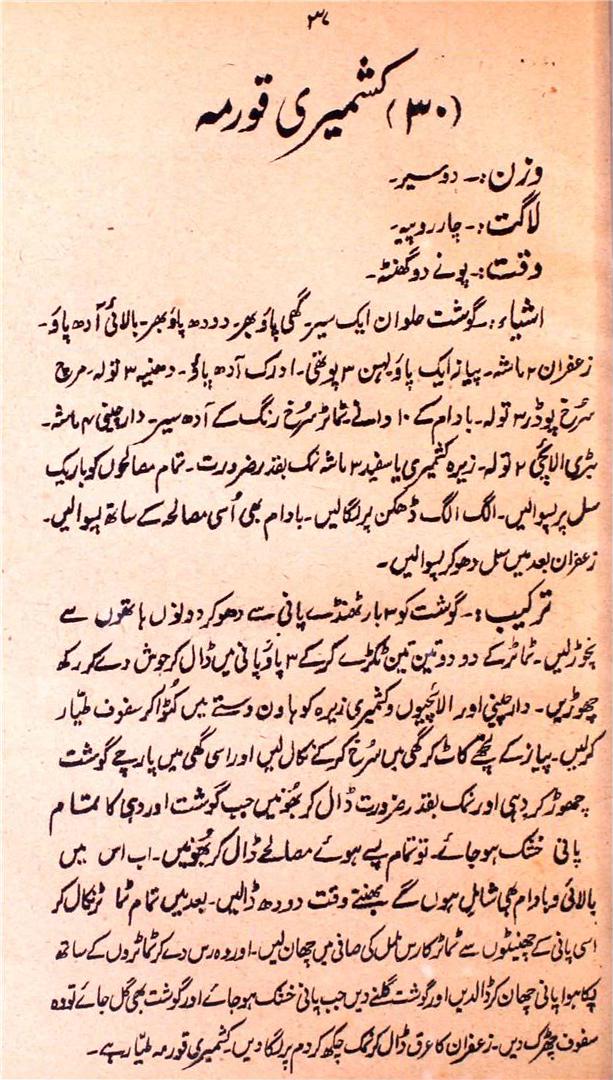 ۳۷
(۳۰) کشمیری قورمہ
وزن:۔ دو سیر۔
لاگت:۔ چار روپیہ۔
وقت:۔ پونے دو گھنٹہ۔
اشیاء:۔ گوشت حلوان ایک سیر۔ گھی پاؤ بھر۔ دودھ پاؤ بھر۔ بالائی آدھ پاؤ۔
زعفران ۲ ماشہ۔ پیاز ایک پاؤ لہسن ۳ پوتھی۔ ادرک آدھ پاؤ۔ دھنیہ ۳ تولہ۔ مرچ
سُرخ پوڈر ۳ تولہ۔ بادام کے ۱۰ دانے۔ ٹماٹر سُرخ رنگ کے آدھ سیر۔ دارچینی ۴ ماشہ۔
بڑی الائچی ۲ تولہ۔ زیرہ کشمیری یا سفید ۳ ماشہ نمک بقدر ضرورت۔ تمام مصالحوں کو باریک
سل پر پسوالیں۔ الگ الگ ڈھکن پر لگالیں۔ بادام بھی اُسی مصالحہ کے ساتھ پسوالیں۔
زعفران بعد میں سل دھو کر پسوالیں۔
ترکیب:۔ گوشت کو ۳ بار ٹھنڈے پانی سے دھو کر دونوں ہاتھوں سے
نچوڑ لیں۔ ٹماٹر کے دو دو تین تین ٹکڑے کر کے ۳ پاؤ پانی میں ڈال کر جوش دے کر رکھ
چھوڑیں۔ دارچینی اور الائچیوں و کشمیری زیرہ کو ہاون دستے میں کٹوا کر سفوف طیّار
کرلیں۔ پیاز کے لچھے کاٹ کر گھی میں سُرخ کر کے نکال لیں اور اسی گھی میں پارچے گوشت
چھوڑ کر دہی اور نمک بقدر ضرورت ڈال کر بھُونیں جب گوشت اور دہی کا تمام
پانی خشک ہو جائے۔ تو تمام پسے ہوئے مصالحے ڈال کر بھُونیں۔ اب اس میں
بالائی و بادام بھی شامل ہوں گے بھنتے وقت دودھ ڈالیں۔ بعد میں تمام ٹماٹر نکال کر
اسی پانی کے چھینٹوں سے ٹماٹر کا رس ململ کی صافی میں چھان لیں۔ اور وہ رس دے کر ٹماٹروں کے ساتھ
پکا ہوا پانی چھان کر ڈالدیں اور گوشت گلنے دیں جب پانی خشک ہو جائے اور گوشت بھی گل جائے تو وہ
سفوف چھڑک دیں۔ زعفران کا عرق ڈال کر نمک چکھ کر دم پر لگا دیں۔ کشمیری قورمہ طیّار ہے۔